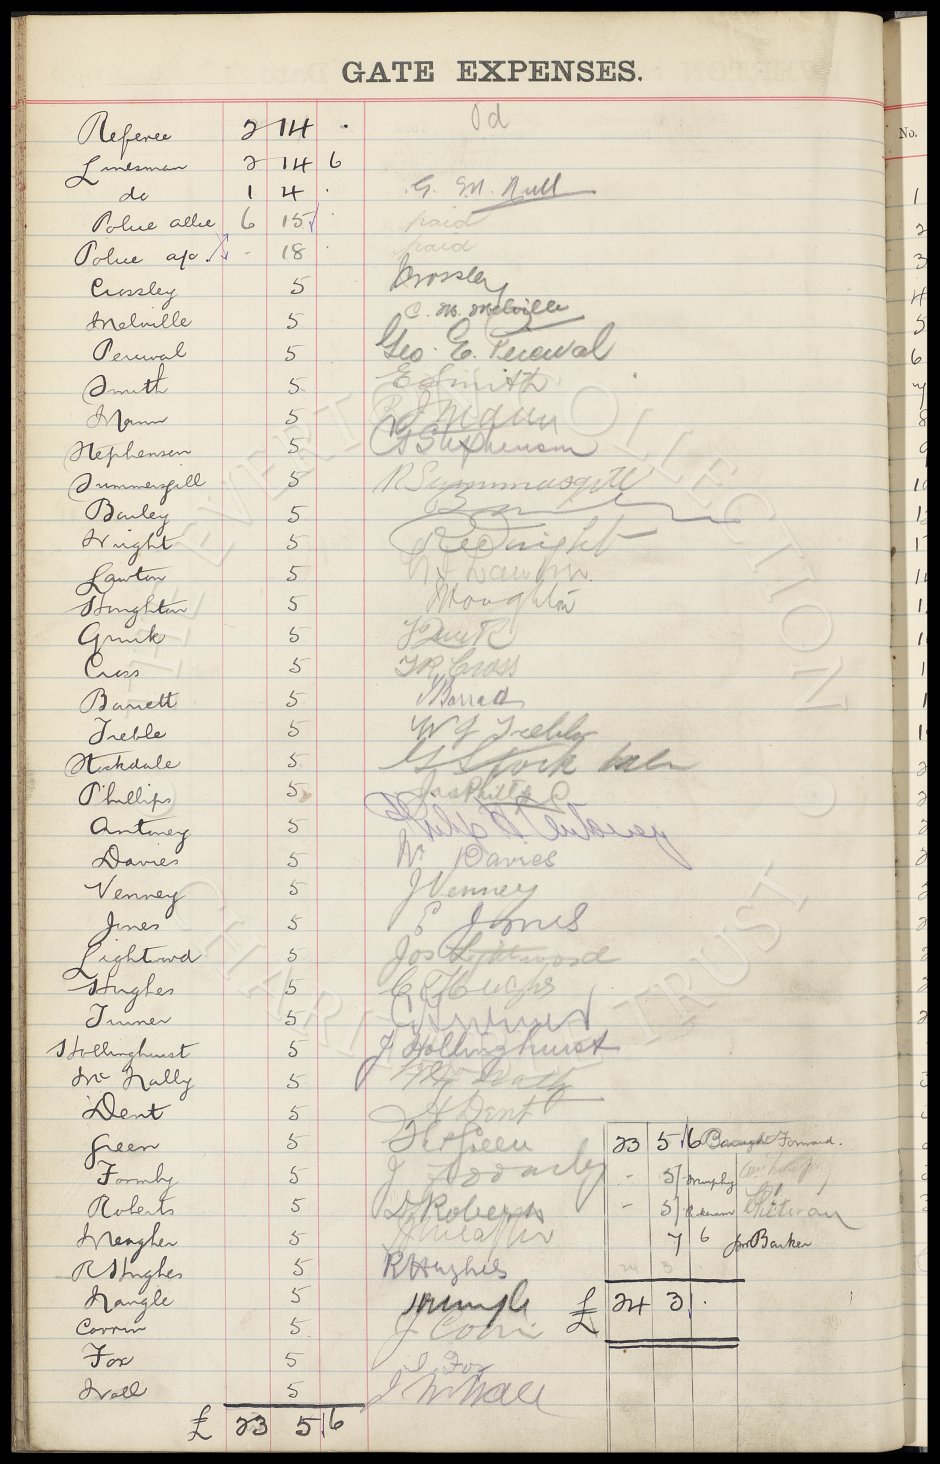 GATE EXPENSES.
No.
Referee 2 14 . Pd
Linesman 2 14 6
do 1 4 . G. M. Null
Police allce 6 15 . paid
Police a/c - 18 . paid
Crossley 5 Crossley
Melville 5 C. M. Melville
Percival 5 Geo. E. Percival
Smith 5 E Smith
Mann 5 J Mann
Stephenson 5 Stephenson
Summersgill 5 R Summersgill
Bailey 5
Wright 5 Wright
Lawton 5 Lawton
Houghton 5 Houghton
Quirk 5 Quirk
Cross 5 T R Cross
Barrett 5 Barrett
Treble 5 W J Treble
Stockdale 5 Stockdale
Phillips 5 Jas Phillips
Antoney 5 Philip Antoney
Davies 5 W Davies
Venney 5 J Venney
Jones 5 E Jones
Lightwood 5 Jos Lightwood
Hughes 5 Hughes
Turner 5 Turner
Hollinghurst 5 J Hollinghurst
Mc Nally 5
Dent 5 H Dent
Green 5 Green 23 5 6 Brought Forward.
Formby 5 J Formby - 5 Murphy
Roberts 5 Roberts - 5
Meagher 5 Meagher 7 6 Barker
R Hughes 5 R Hughes 24 3
Nangle 5 Nangle £ 24 3 .
Corrin 5 J Corrin
Fox 5 J Fox
Wall 5 J W Wall
£ 23 5 6
THE EVERTON COLLECTION CHARITABLE TRUST